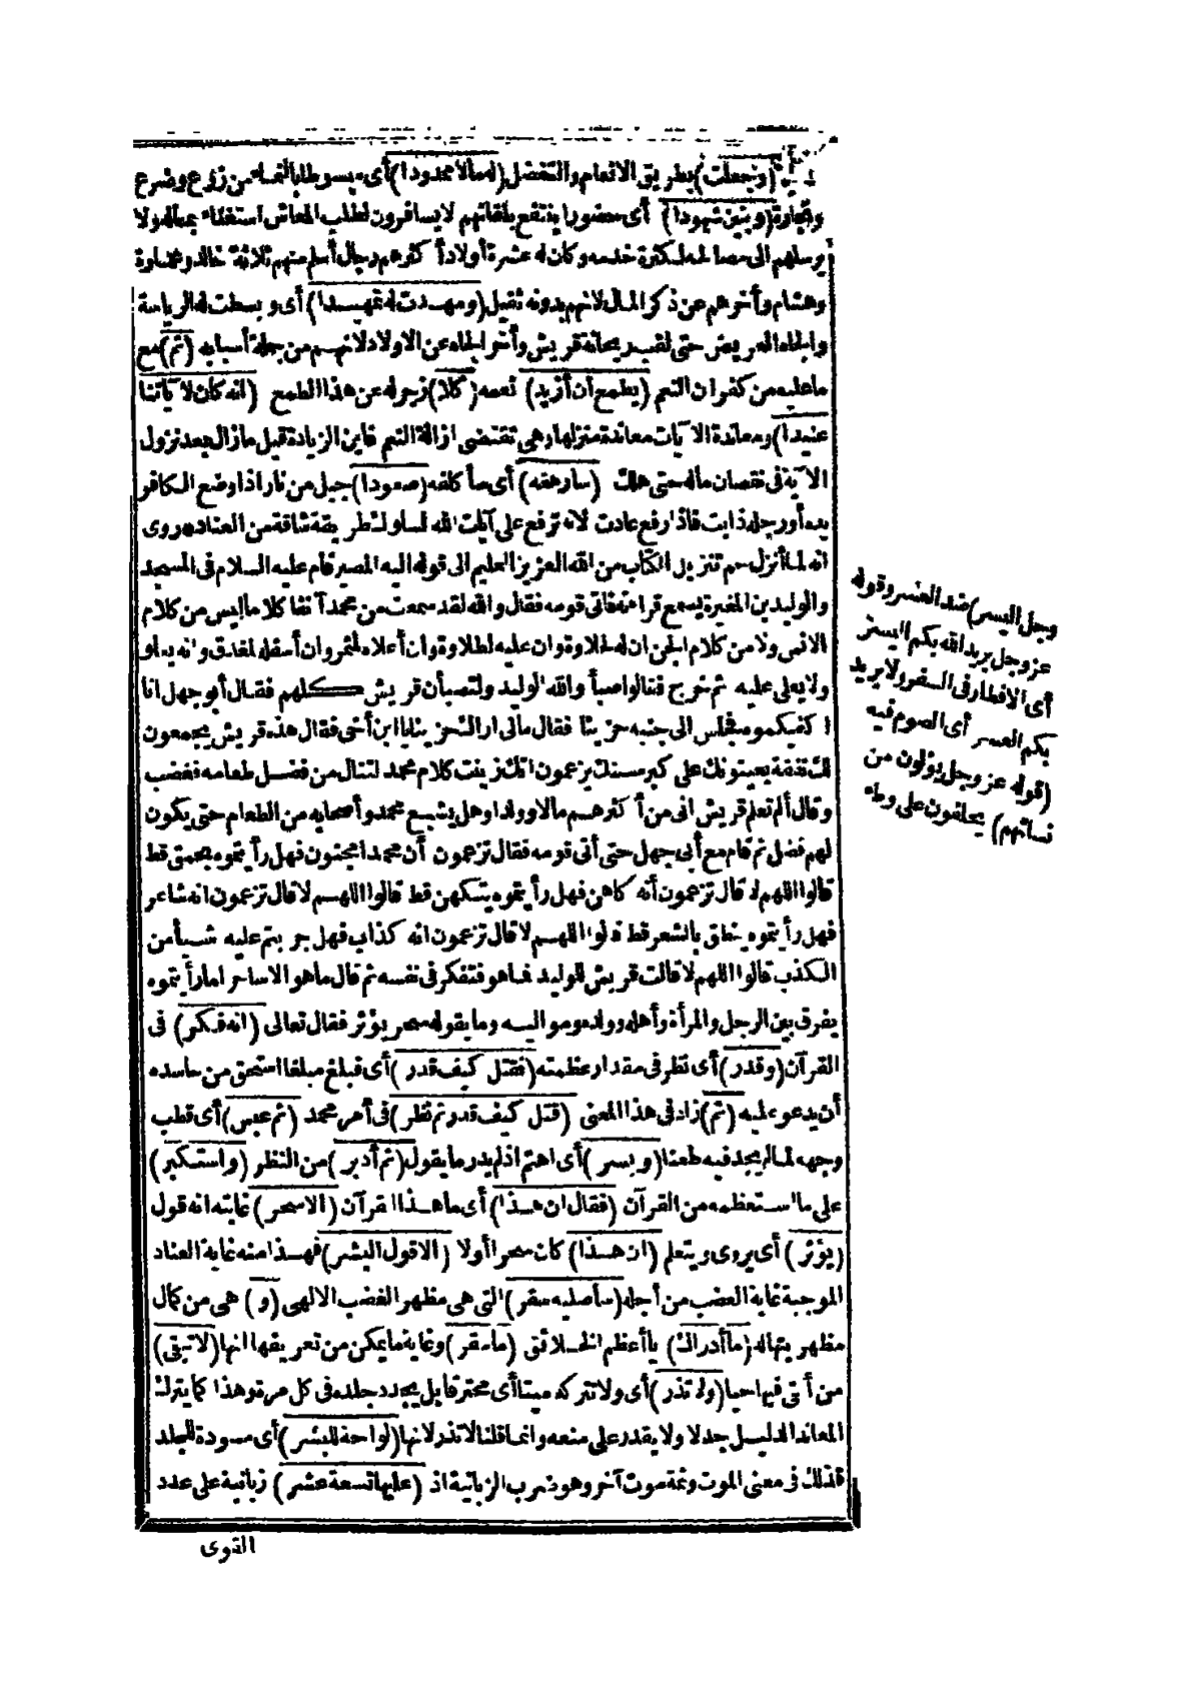 (وجعلت) بطريق الانعام والتفضل (له مالا ممدودا) أى مبسوطا بالنماء من زرع وضرع
وتجارة (وبنين شهودا) أى حضورا ينتفع بلقائهم لا يسافرون لطلب المعاش استغناء بماله ولا
يرسلهم الى مصالحه لكثرة خدمه وكان له عشرة أولاد أكثرهم رجال أسلم منهم ثلاثة خالد وعمارة
وهشام وأخرهم عن ذكر المال لانهم بدونه ثقيل (ومهدت له تمهيدا) أى وبسطت له الرياسة
والجاه العريض حتى لقب ريحانة قريش وأخر الجاه عن الاولاد لانهم من جملة أسبابه (ثم) مع
ما عليه من كفران النعم (يطمع أن أزيد) نعمه (كلا) زجر له عن هذا الطمع (انه كان لآياتنا
عنيدا) ومعاندة الآيات معاندة منزلها وهى تقتضى ازالة النعم فاين الزيادة قيل مازال بعد نزول
الآية فى نقصان ماله حتى هلك (سأرهقه) أى سأكلفه (صعودا) جبل من نار اذا وضع الكافر
يده أو رجله ذابت فاذا رفع عادت لانه ترفع على آيات الله لسلوك طريقة شاقة من العناد روى
انه لما أنزل حم تنزيل الكتاب من الله العزيز العليم الى قوله اليه المصير قام عليه السلام فى المسجد
والوليد بن المغيرة يسمع قراءته فاتى قومه فقال والله لقد سمعت من محمد آنفا كلاما ليس من كلام
الانس ولا من كلام الجن ان له لحلاوة وان عليه لطلاوة وان أعلاه لمثمر وان أسفله لمغدق وانه يعلو
ولا يعلى عليه ثم خرج فقالوا صبأ والله الوليد ولتصبأن قريش كلهم فقال أبو جهل انا
اكفيكموه فجلس الى جنبه حزينا فقال مالى أراك حزينا يا ابن أخى فقال هذه قريش يجمعون
لك نفقة يعينونك على كبر سنك يزعمون انك زينت كلام محمد لتنال من فضل طعامه فغضب
وقال ألم تعلم قريش انى من أكثرهم مالا وولدا وهل يشبع محمد وأصحابه من الطعام حتى يكون
لهم فضل ثم قام مع أبى جهل حتى أتى قومه فقال تزعمون أن محمدا مجنون فهل رأيتموه يحمق قط
قالوا اللهم لا قال تزعمون أنه كاهن فهل رأيتموه يتكهن قط قالوا اللهم لا قال تزعمون انه شاعر
فهل رأيتموه ينطق بالشعر قط قالوا اللهم لا قال تزعمون انه كذاب فهل جربتم عليه شيأ من
الكذب قالوا اللهم لا قالت قريش للوليد فما هو فتفكر فى نفسه ثم قال ما هو الا ساحر اما رأيتموه
يفرق بين الرجل والمرأة وأهله وولده ومواليه وما يقوله سحر يؤثر فقال تعالى (انه فكر) فى
القرآن (وقدر) أى نظر فى مقدار عظمته (فقتل كيف قدر) أى فبلغ مبلغا استحق من حاسده
أن يدعو عليه (ثم) زاد فى هذا المعنى (قتل كيف قدر ثم نظر) فى أمر محمد (ثم عبس) أى قطب
وجهه لما لم يجد فيه طعنا (وبسر) أى اهتم اذ لم يدر ما يقول (ثم أدبر) من النظر (واستكبر)
على ما استعظمه من القرآن (فقال ان هذا) أى ما هذا القرآن (الا سحر) غايته انه قول
(يؤثر) أى يروى ويتعلم (ان هذا) كان سحرا أولا (الا قول البشر) فهذا منه غاية العناد
الموجبة غاية الغضب من أجله (سأصليه سقر) التى هى مظهر الغضب الالهى (و) هى من كمال
مظهريتها له (ما أدراك) يا أعظم الخلائق (ما سقر) وغاية ما يمكن من تعريفها انها (لا تبقى)
من أتى فيها حيا (ولا تذر) أى ولا تتركه ميتا أى محترقا بل يجدد جلده فى كل مرة وهذا كما يترك
المعاند الدليل جدلا ولا يقدر على منعه وانما قلنا لا تذر لانها (لواحة للبشر) أى مسودة للجلد
فذلك فى معنى الموت وثمة موت آخر وهو ضرب الزبانية اذ (عليها تسعة عشر) زبانية على عدد
القوى
وجل اليسر) ضد العسر وقوله
عز وجل يريد الله بكم اليسر
أى الافطار فى السفر ولا يريد
بكم العسر أى الصوم فيه
(قوله عز وجل يؤلون من
نسائهم) يحلفون على وطء